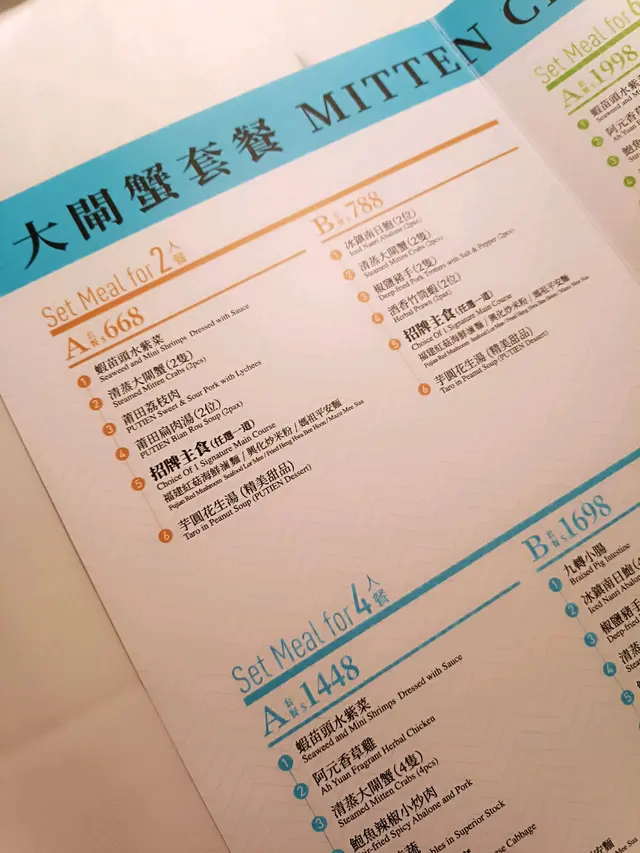 大閘蟹套餐 MITTEN
Set Meal for 2 人餐
A 套餐 $668
1 蝦苗頭水紫菜
Seaweed and Mini Shrimps Dressed with Sauce
2 清蒸大閘蟹(2隻)
Steamed Mitten Crabs (2pcs)
3 莆田荔枝肉
PUTIEN Sweet & Sour Pork with Lychees
4 莆田扁肉湯(2位)
PUTIEN Bian Rou Soup (2pax)
5 招牌主食(任選一道)
Choice Of 1 Signature Main Course
福建紅菇海鮮滷麵 / 興化炒米粉 / 媽祖平安麵
Fujian Red Mushroom Seafood Lor Mee / Fried Heng Hwa Bee Hoon / Mazu Mee Sua
6 芋圓花生湯 (精美甜品)
Taro in Peanut Soup (PUTIEN Dessert)
B 套餐 $788
1 冰鎮南日鮑(2位)
Iced Nanri Abalone (2pax)
2 清蒸大閘蟹(2隻)
Steamed Mitten Crabs (2pcs)
3 椒鹽豬手(2隻)
Deep-fried Pork Trotters with Salt & Pepper (2pcs)
4 酒香竹筒蝦(2位)
Herbal Prawn (2pax)
5 招牌主食(任選一道)
Choice Of 1 Signature Main Course
福建紅菇海鮮滷麵 / 興化炒米粉 / 媽祖平安麵
Fujian Red Mushroom Seafood Lor Mee / Fried Heng Hwa Bee Hoon / Mazu Mee Sua
6 芋圓花生湯 (精美甜品)
Taro in Peanut Soup (PUTIEN Dessert)
Set Meal for 4 人餐
A 套餐 $1448
1 蝦苗頭水紫菜
Seaweed and Mini Shrimps Dressed with Sauce
2 阿元香草雞
Ah Yuan Fragrant Herbal Chicken
3 清蒸大閘蟹(4隻)
Steamed Mitten Crabs (4pcs)
鮑魚辣椒小炒肉
Stir-fried Spicy Abalone and Pork
in Superior Stock
Cabbage
B 套餐 $1698
1 九轉小腸
Braised Pig Intestine
2 冰鎮南日鮑
Iced Nanri Abalone
3 椒鹽豬手
Deep-fried
4 清蒸
Set Meal for 6
A 套餐 $1998
1 蝦苗頭水紫菜
Seaweed and Mini
2 阿元香草
Ah Yuan Fragrant
3 鮑魚
4